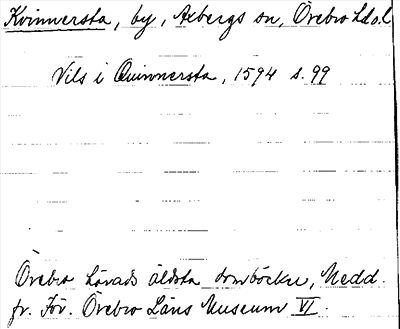 Kvinnersta, by, Axbergs sn, Örebro hd o. l.
Nils i Quinnersta, 1594 s. 99
Örebro härads äldsta domböcker, Medd.
fr. För. Örebro Läns Museum VI.